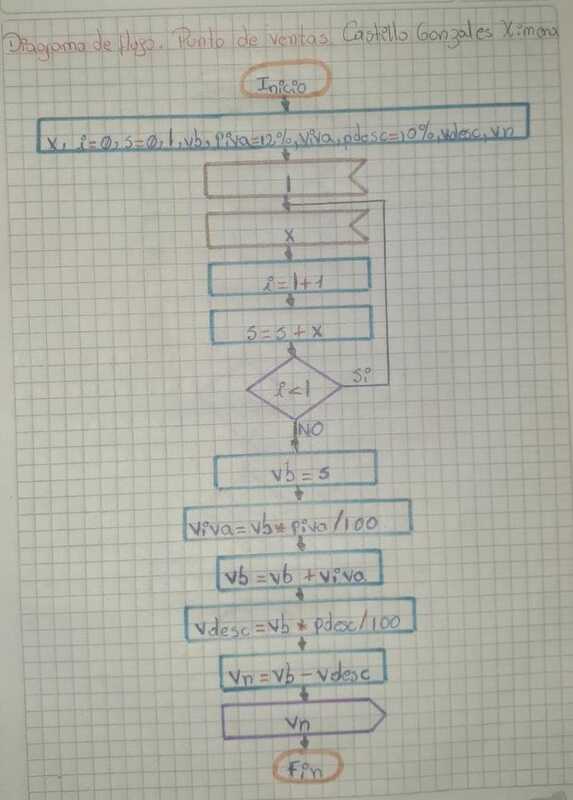 Diagrama de flujo. Punto de ventas. Castello Gonzales Ximena
Inicio
x, i=0, s=0, l, vb, piva=12%, viva, pdesc=10%, vdesc, vn
l
x
i=l+1
s=s+x
i<l
si
NO
vb=s
viva=vb*piva/100
vb=vb+viva
vdesc=vb*pdesc/100
vn=vb-vdesc
vn
Fin